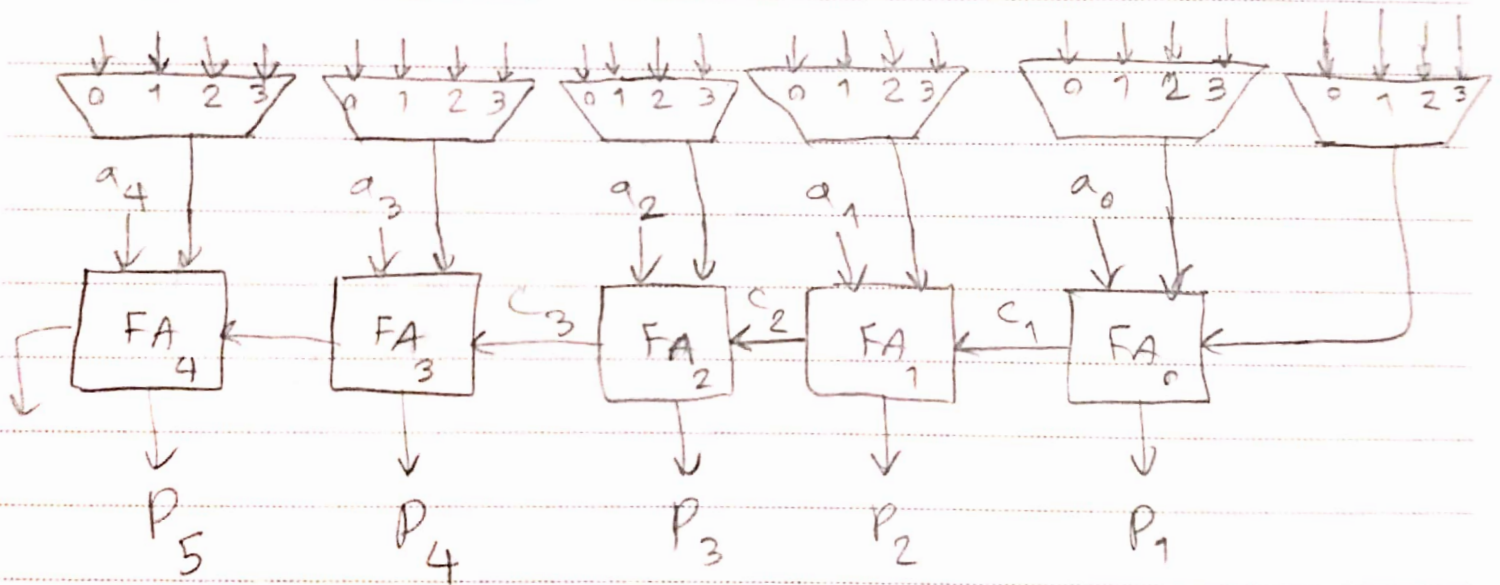 0 1 2 3 0 1 2 3 0 1 2 3 0 1 2 3 0 1 2 3 0 1 2 3
a4 a3 a2 a1 a0
FA4 FA3 C3 FA2 C2 FA1 C1 FA0
P5 P4 P3 P2 P1